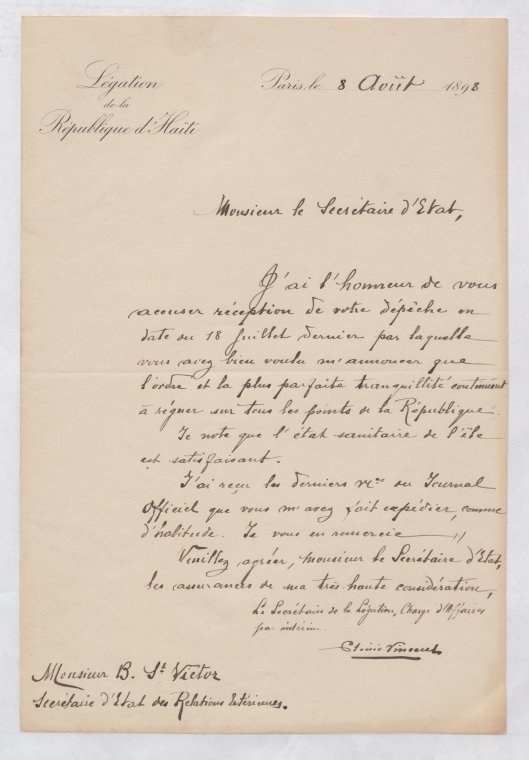 Légation
de la
République d'Haïti
Paris, le 8 Août 1898
Monsieur le Secrétaire d'Etat,
J'ai l'honneur de vous
accuser réception de votre dépêche en
date du 18 Juillet dernier par laquelle
vous avez bien voulu m'annoncer que
l'ordre et la plus parfaite tranquillité continuent
à régner sur tous les points de la République.
Je note que l'état sanitaire de l'île
est satisfaisant.
J'ai reçu les derniers du Journal
Officiel que vous m'avez fait expédier, comme
d'habitude. Je vous en remercie
Veuillez agréer, Monsieur le Secrétaire d'Etat,
les assurances de ma très haute considération,
Le Secrétaire de la Légation, Chargé d'Affaires
par intérim
Sténio Vincent
Monsieur B. St Victor
Secrétaire d'Etat des Relations Extérieures.